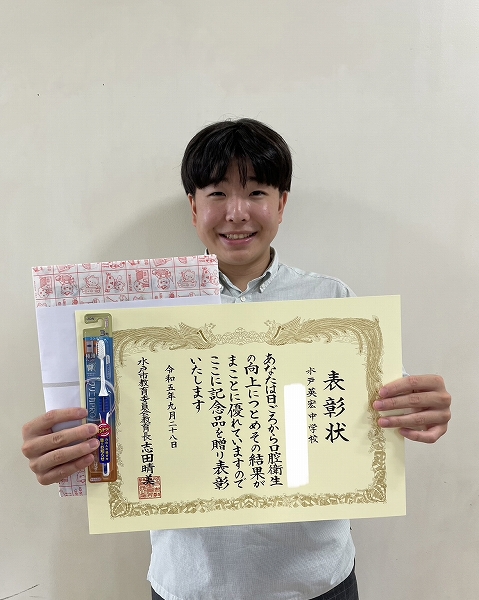 表彰状
水戸英宏中学校
あなたは日ごろから口腔衛生
の向上につとめその結果が
まことに優れていますので
ここに記念品を贈り表彰
いたします
令和五年九月二十八日
水戸市教育委員会教育長 志田晴美